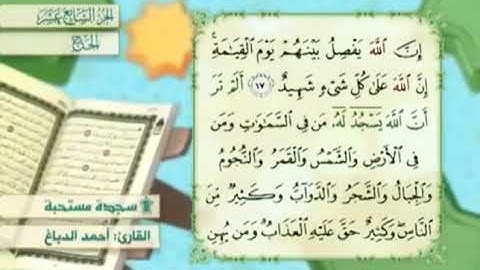 الجزء السابع عشر
الحج
إِنَّ ٱللَّهَ يَفْصِلُ بَيْنَهُمْ يَوْمَ ٱلْقِيَٰمَةِۚ
إِنَّ ٱللَّهَ عَلَىٰ كُلِّ شَىْءٍ شَهِيدٌ ١٧ أَلَمْ تَرَ
أَنَّ ٱللَّهَ يَسْجُدُ لَهُۥ مَن فِى ٱلسَّمَٰوَٰتِ وَمَن
فِى ٱلْأَرْضِ وَٱلشَّمْسُ وَٱلْقَمَرُ وَٱلنُّجُومُ
وَٱلْجِبَالُ وَٱلشَّجَرُ وَٱلدَّوَآبُّ وَكَثِيرٌ مِّنَ
ٱلنَّاسِۖ وَكَثِيرٌ حَقَّ عَلَيْهِ ٱلْعَذَابُۗ وَمَن يُهِنِ
سجدة مستحبة
القارئ: أحمد الدباغ